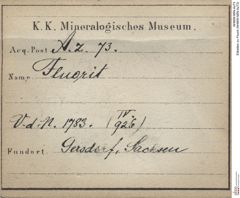 K. K. Mineralogisches Museum.
Acq. Post A. z. 73.
Name Fluorit
V. d. N. 1783. (IV 926)
Fundort Gersdorf, Sachsen